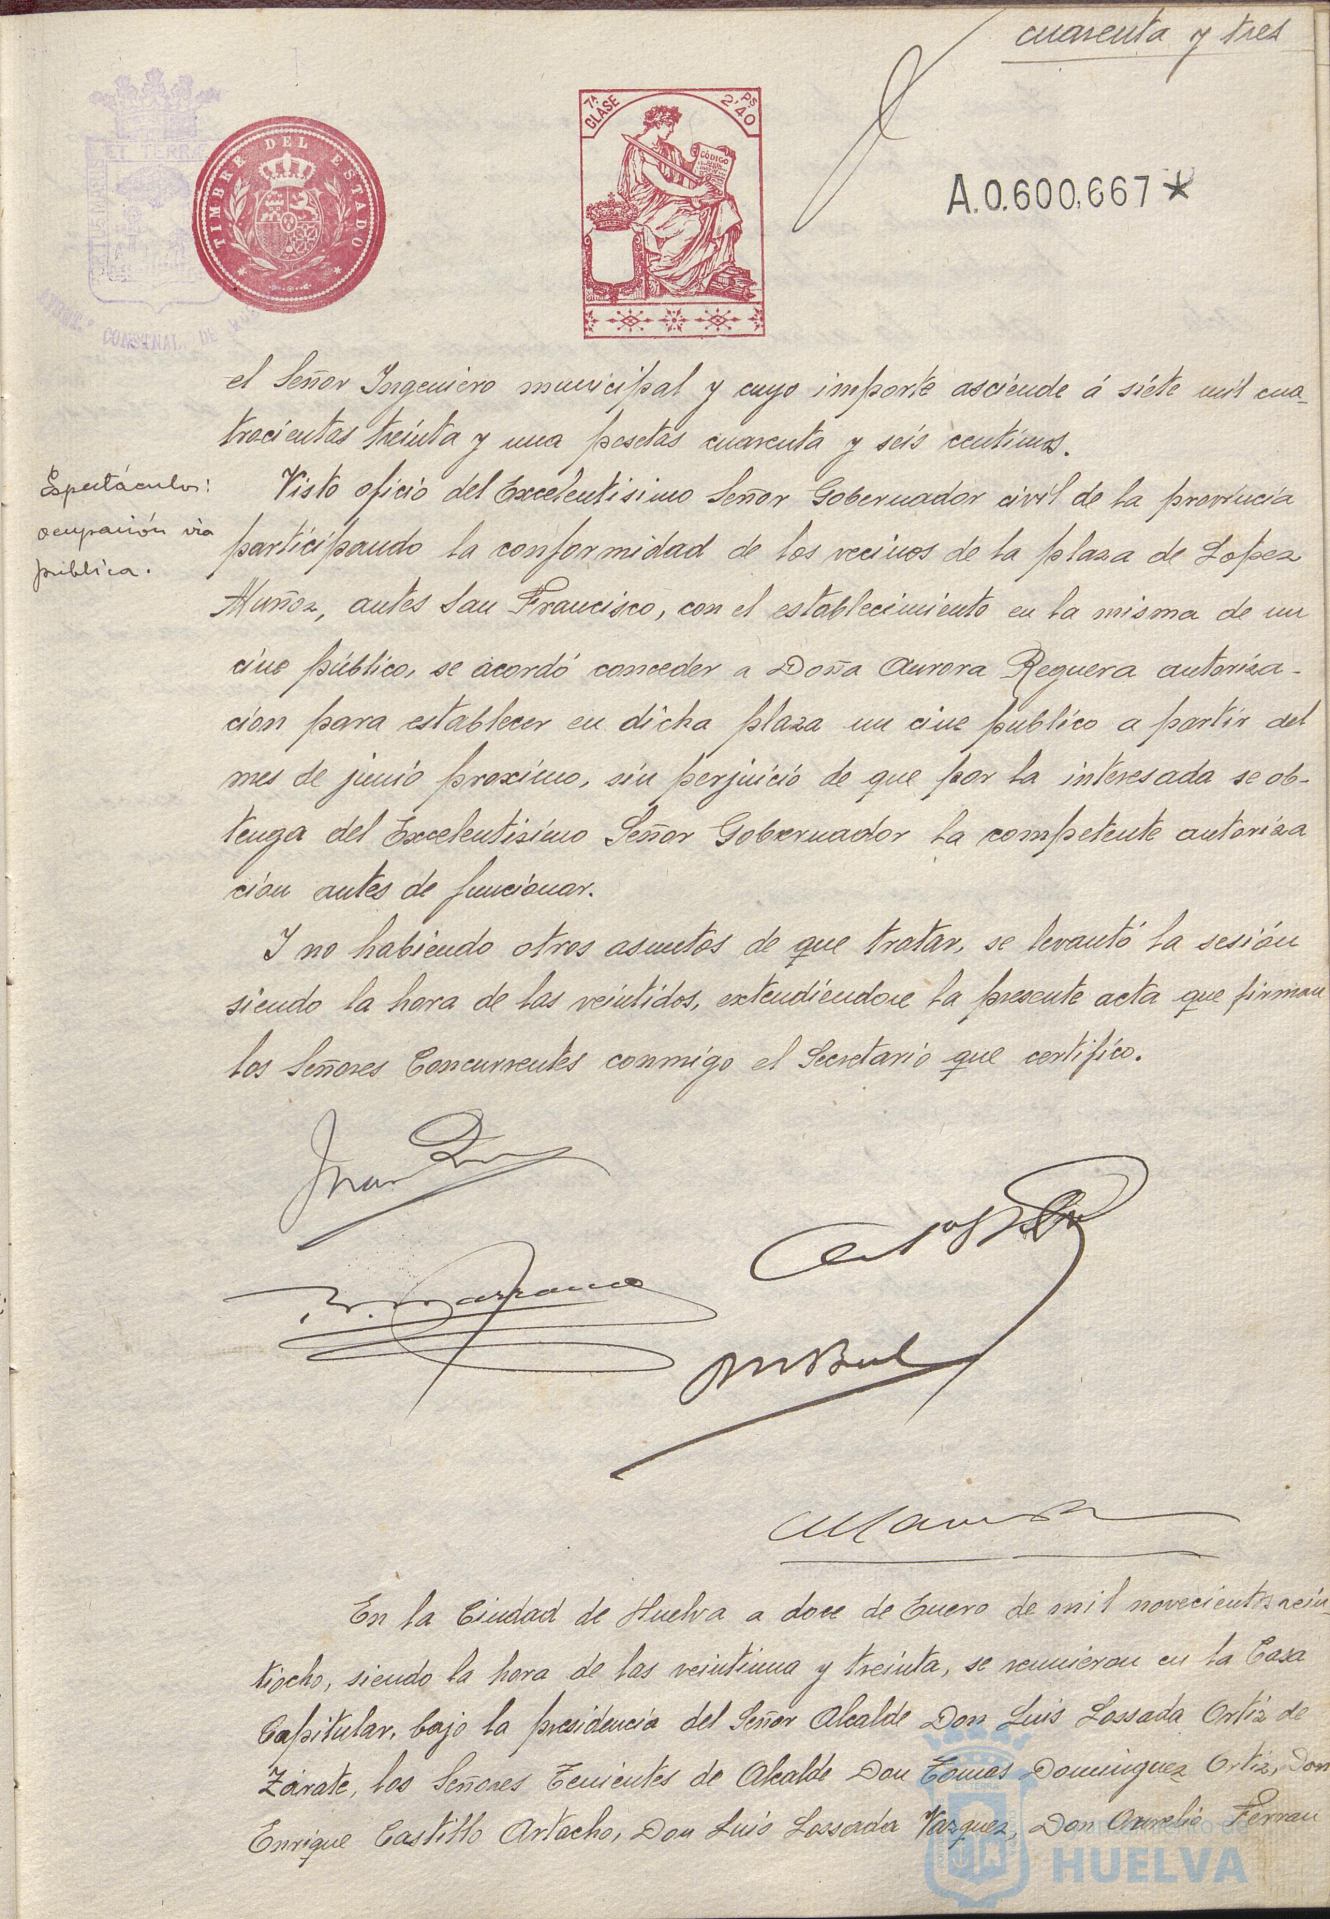 cuarenta y tres
TIMBRE DEL ESTADO
7ª CLASE
PS 2'40
CÓDIGO
A.0.600,667*
ET TERRÆ
CONSTNAL. DE
el Señor Ingeniero municipal y cuyo importe asciende á siete mil cua-
trocientas treinta y una pesetas cuarenta y seis centimos.
Espectáculos:
ocupación via
pública.
Visto oficio del Excelentisimo Señor Gobernador civil de la provincia
participando la conformidad de los vecinos de la plaza de Lopez
Muñoz, antes San Francisco, con el establecimiento en la misma de un
cine público, se acordó conceder a Doña Aurora Reguera autoriza-
cion para establecer en dicha plaza un cine publico a partir del
mes de junio proximo, sin perjuicio de que por la interesada se ob-
tenga del Excelentisimo Señor Gobernador la competente autoriza
cion antes de funcionar.
Y no habiendo otros asuntos de que tratar, se levantó la sesión
siendo la hora de las veintidos, extendiendose la presente acta que firman
los Señores Concurrentes conmigo el Secretario que certifico.
En la Ciudad de Huelva a doce de Enero de mil novecientos vein-
tiocho, siendo la hora de las veintiuna y treinta, se reunieron en la Casa
Capitular, bajo la presidencia del Señor Alcalde Don Luis Lossada Ortiz de
Zárate, los Señores Tenientes de Alcalde Don Tomas Dominguez Ortiz, Don
Enrique Castillo Artacho, Don Luis Lossada Vazquez, Don Aurelio Ferran
Ayuntamiento de
HUELVA